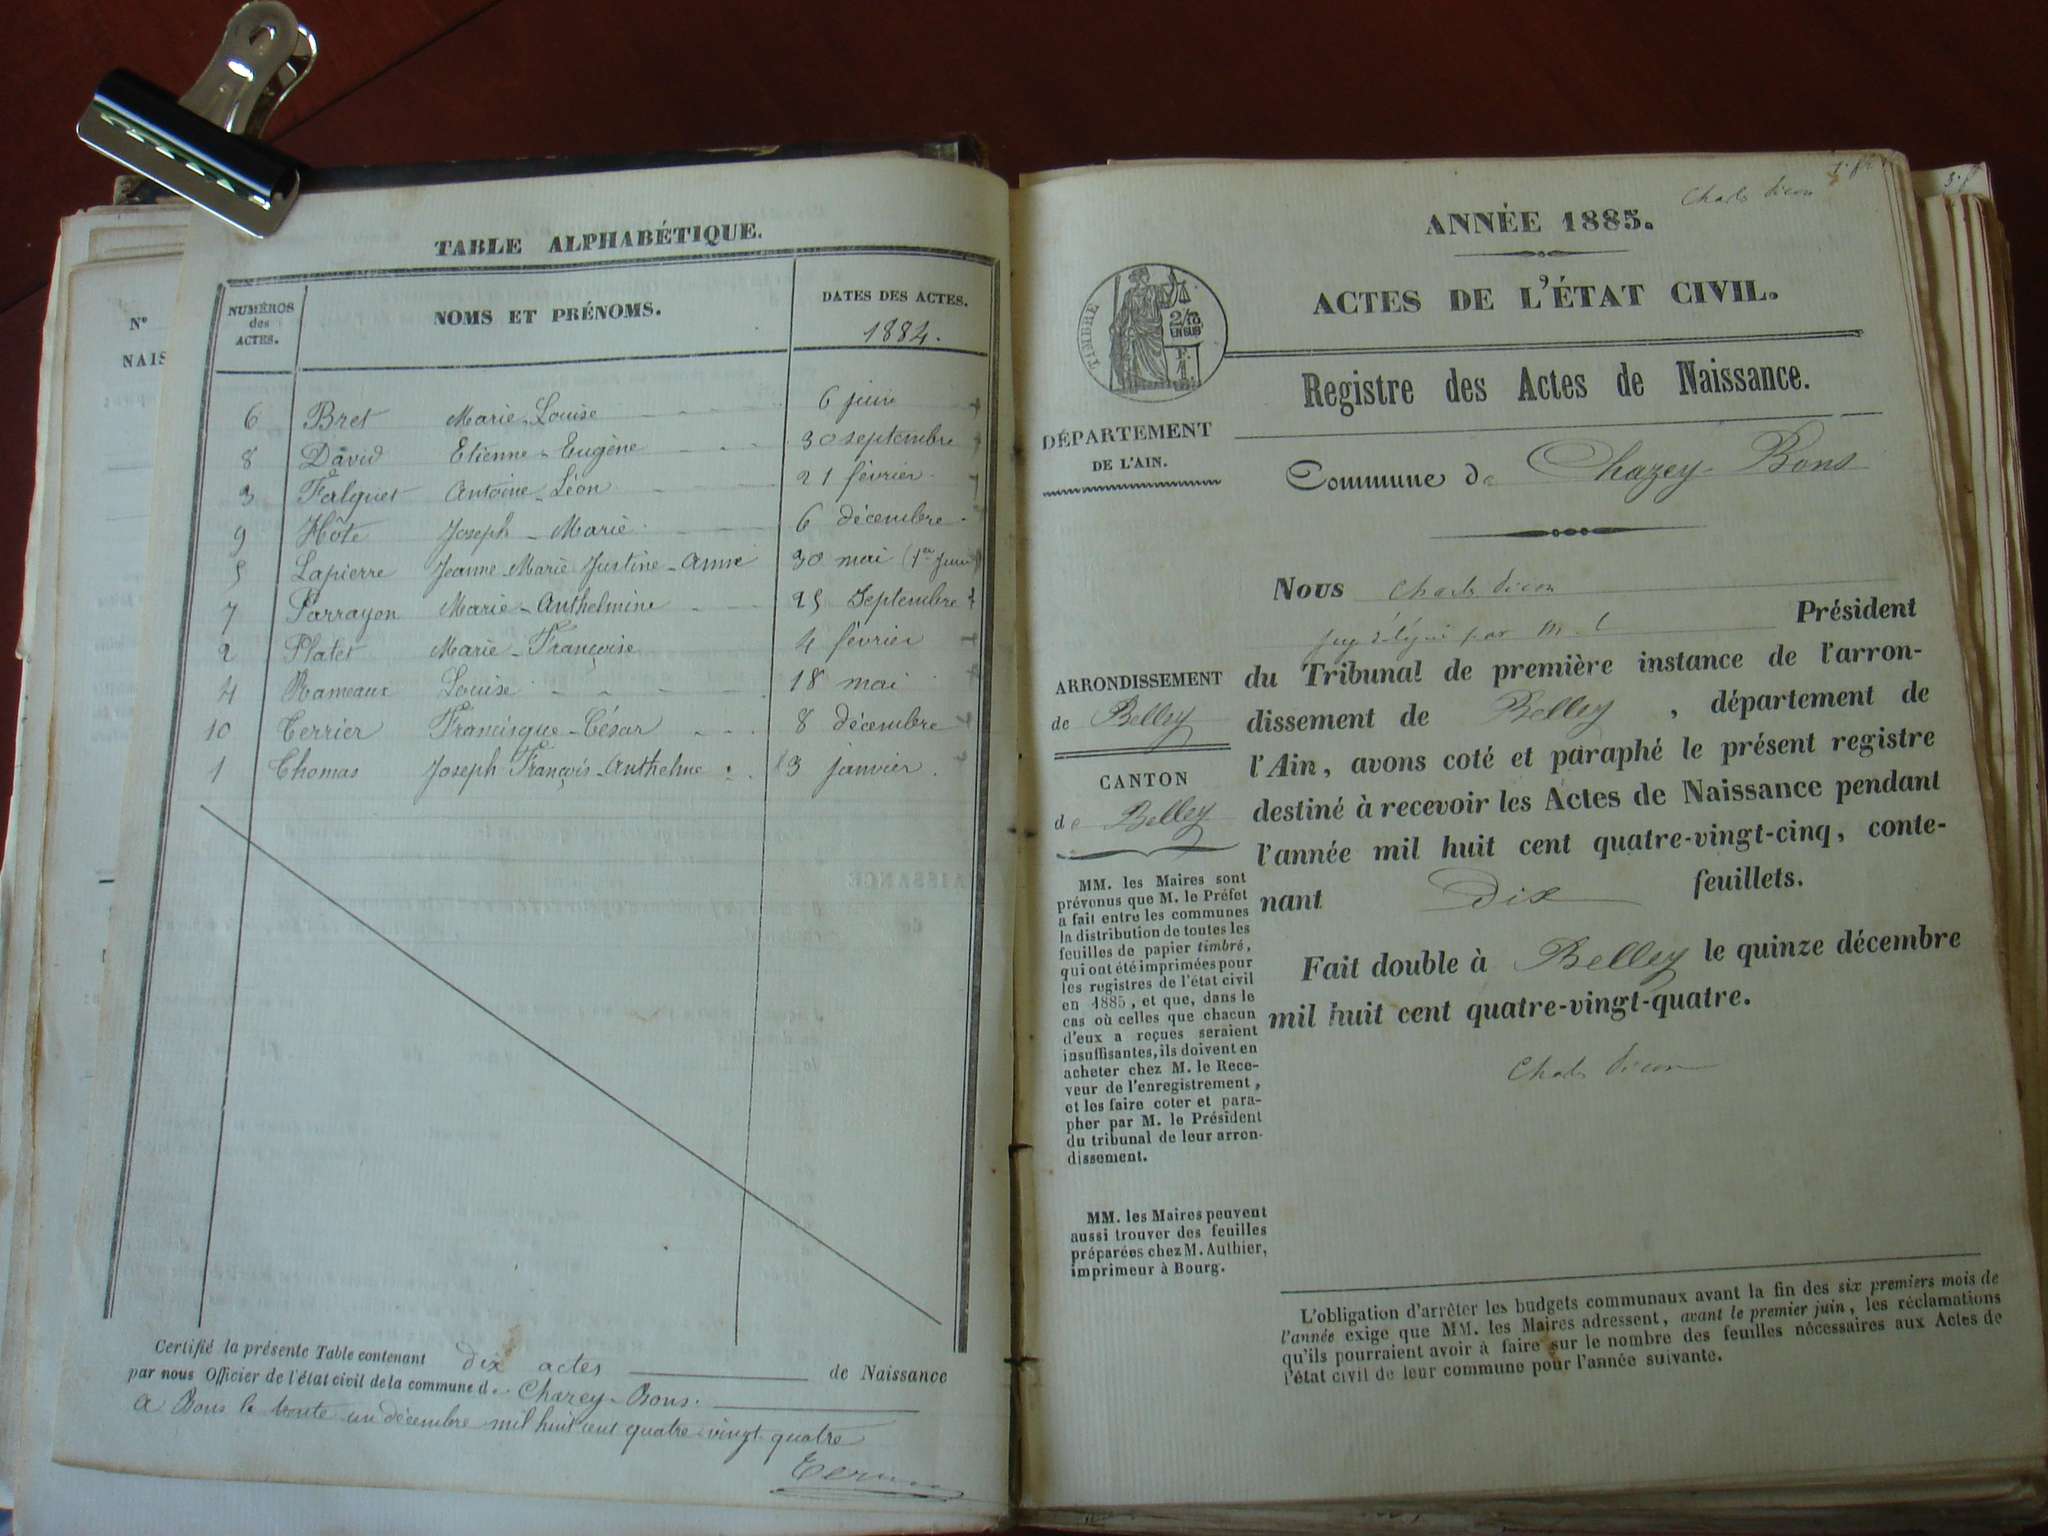 N°
NAIS
TABLE ALPHABÉTIQUE.
NUMÉROS des ACTES. NOMS ET PRÉNOMS. DATES DES ACTES. 1884.
6 Bret Marie-Louise 6 juin
8 David Etienne-Eugène 30 septembre
3 Falquet Antoine-Léon 21 février
9 Hôte Joseph-Marie 6 décembre
5 Lapierre Jeanne-Marie Justine-Anne 30 mai (1er juin
7 Parrayon Marie-Anthelmine 25 Septembre
2 Platet Marie-Françoise 4 février
4 Rameaux Louise 18 mai
10 Terrier Francisque-César 8 décembre
1 Thomas Joseph François-Anthelme 3 janvier
Certifié la présente Table contenant dix actes de Naissance
par nous Officier de l'état civil de la commune de Chazey-Bons.
A Bons le trente un décembre mil huit cent quatre-vingt quatre
ANNÉE 1885.
ACTES DE L'ÉTAT CIVIL.
TIMBRE
2/10
EN SUS
F.
1.
Registre des Actes de Naissance.
DÉPARTEMENT
DE L'AIN.
Commune de Chazey-Bons
Nous
Président
ARRONDISSEMENT
de Belley
CANTON
de Belley
du Tribunal de première instance de l'arron-
dissement de Belley, département de
l'Ain, avons coté et paraphé le présent registre
destiné à recevoir les Actes de Naissance pendant
l'année mil huit cent quatre-vingt-cinq, conte-
nant Dix feuillets.
Fait double à Belley le quinze décembre
mil huit cent quatre-vingt-quatre.
MM. les Maires sont
prévenus que M. le Préfet
a fait entre les communes
la distribution de toutes les
feuilles de papier timbré,
qui ont été imprimées pour
les registres de l'état civil
en 1885, et que, dans le
cas où celles que chacun
d'eux a reçues seraient
insuffisantes, ils doivent en
acheter chez M. le Rece-
veur de l'enregistrement,
et les faire coter et para-
pher par M. le Président
du tribunal de leur arron-
dissement.
MM. les Maires peuvent
aussi trouver des feuilles
préparées chez M. Authier,
imprimeur à Bourg.
L'obligation d'arrêter les budgets communaux avant la fin des six premiers mois de
l'année exige que MM. les Maires adressent, avant le premier juin, les réclamations
qu'ils pourraient avoir à faire sur le nombre des feuilles nécessaires aux Actes de
l'état civil de leur commune pour l'année suivante.